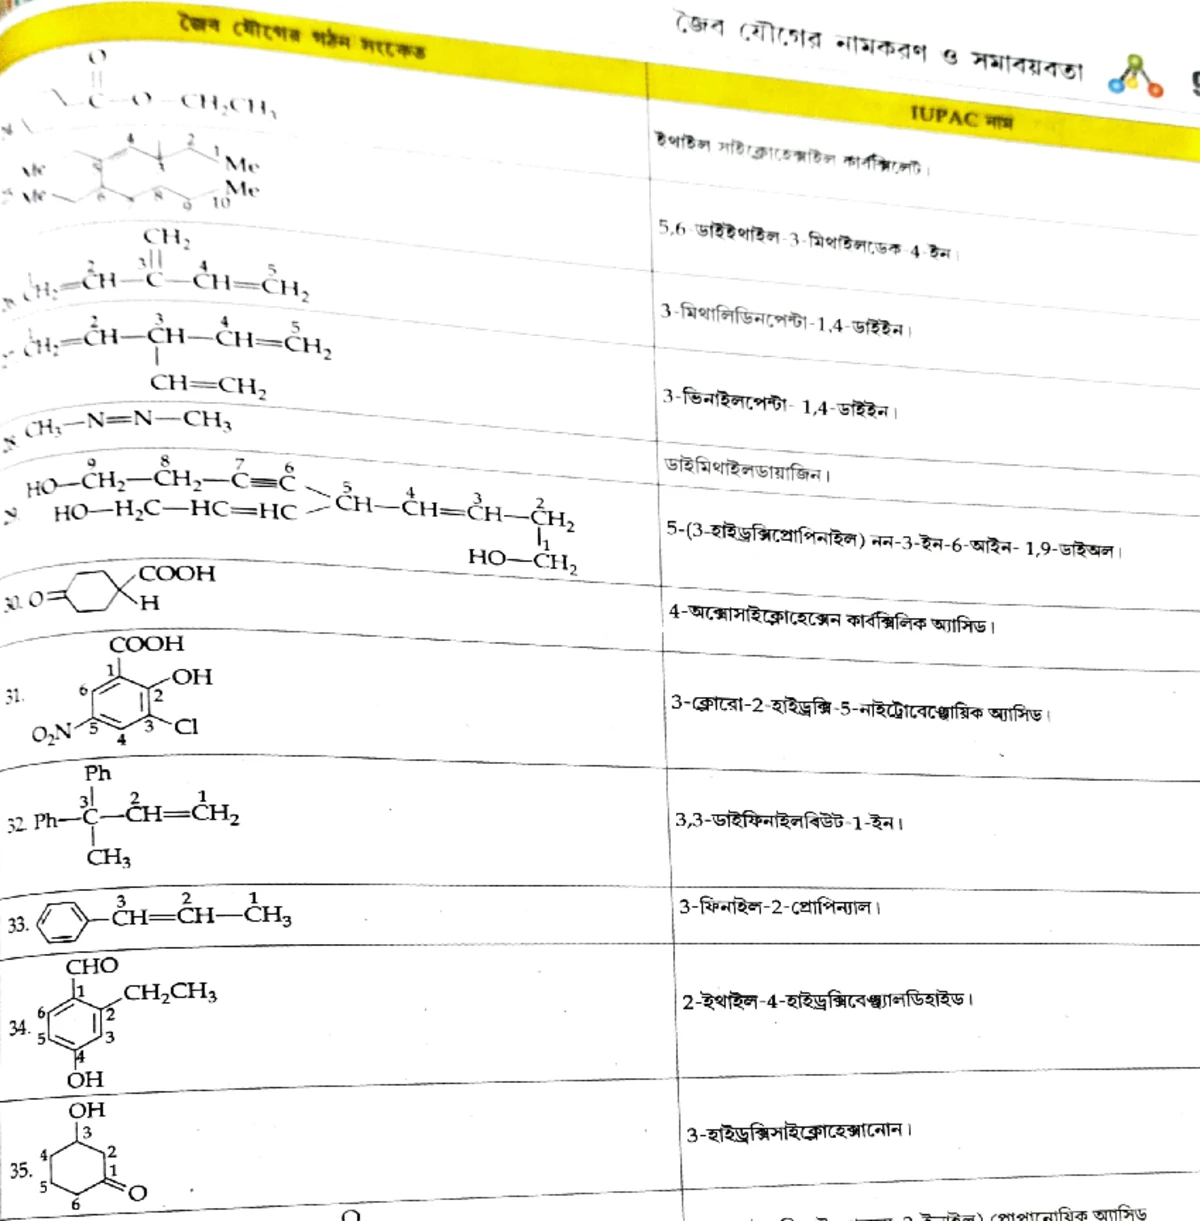 জৈব যৌগের নামকরণ ও সমাবয়বতা
জৈব যৌগের গঠন সংকেত
IUPAC নাম
O
C—O—CH₂CH₃
ইথাইল সাইক্লোহেক্সাইল কার্বক্সিলেট।
4 2 1 Me
Me
Me
Me
6 7 8 9 10
5,6-ডাইইথাইল-3-মিথাইলডেক-4-ইন।
CH₂
1 2 3 4 5
CH₂=CH—C—CH=CH₂
3-মিথালিডিনপেন্টা-1,4-ডাইইন।
1 2 3 4 5
CH₂=CH—CH—CH=CH₂
CH=CH₂
3-ভিনাইলপেন্টা- 1,4-ডাইইন।
CH₃—N=N—CH₃
ডাইমিথাইলডায়াজিন।
9 8 7 6
HO—CH₂—CH₂—C≡C
5 4 3 2
CH—CH=CH—CH₂
HO—H₂C—HC=HC
1
HO—CH₂
5-(3-হাইড্রক্সিপ্রোপিনাইল) নন-3-ইন-6-আইন- 1,9-ডাইঅল।
30. O= COOH
H
4-অক্সোসাইক্লোহেক্সেন কার্বক্সিলিক অ্যাসিড।
31.
COOH
1 OH
6 2
O₂N 5 4 3 Cl
3-ক্লোরো-2-হাইড্রক্সি-5-নাইট্রোবেঞ্জোয়িক অ্যাসিড।
Ph
3 2 1
32. Ph—C—CH=CH₂
CH₃
3,3-ডাইফিনাইলবিউট-1-ইন।
3 2 1
33. CH=CH—CH₃
3-ফিনাইল-2-প্রোপিন্যাল।
CHO
1 CH₂CH₃
6 2
34. 5 3
4
OH
2-ইথাইল-4-হাইড্রক্সিবেঞ্জ্যালডিহাইড।
OH
3
4 2
35. 1
5 O
6
3-হাইড্রক্সিসাইক্লোহেক্সানোন।
O
প্রোপানোয়িক অ্যাসিড